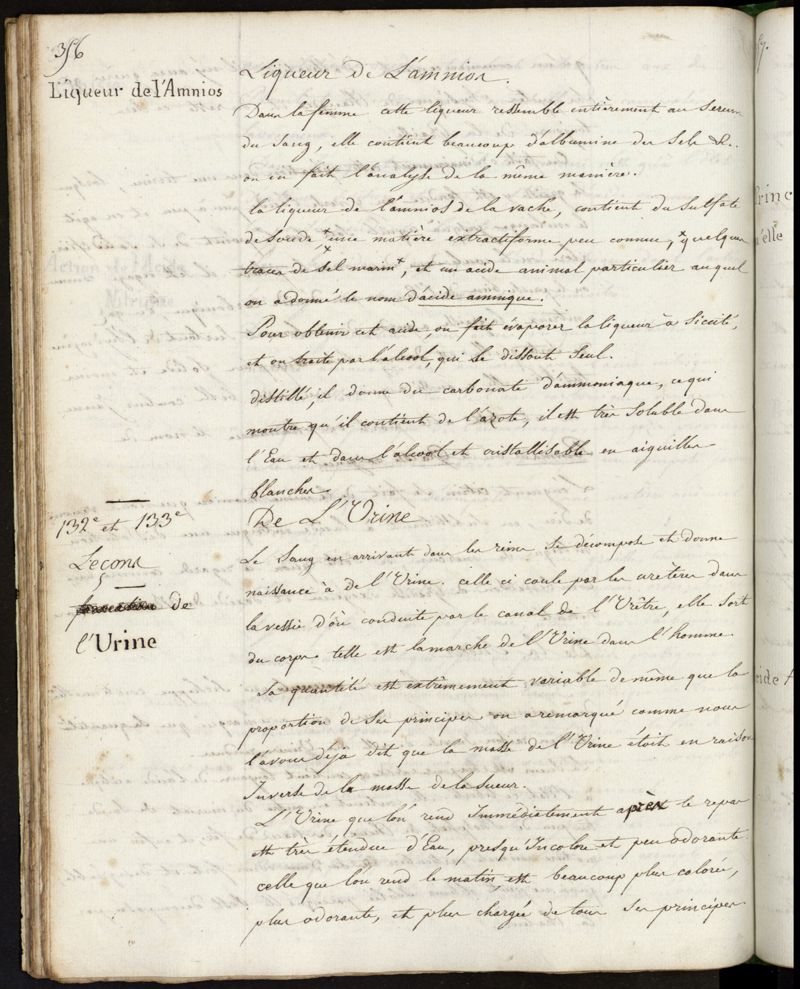 356
Liqueur de l'Amnios
Liqueur de L'amnios.
Dans la femme cette liqueur ressemble entièrement au Serum
du Sang, elle contient beaucoup d'albumine des Sels &c.
on en fait l'analyse de la même manière.
la liqueur de l'amnios de la vache, contient du Sulfate
de Soude + une matière extractiforme peu connue, + quelques
traces de sel marin +, et un acide animal particulier auquel
on a donné le nom d'acide amnique.
Pour obtenir cet acide, on fait évaporer la liqueur à Siccité,
et on traite par l'alcool, qui le dissout Seul.
distillé, il donne du carbonate d'ammoniaque, ce qui
montre qu'il contient de l'azote, il est très Soluble dans
l'Eau et dans l'alcool et cristallisable en aiguilles
blanches
132e et 133e
Leçons
de
l'Urine
De L'Urine
Le Sang en arrivant dans les reins se décompose et donne
naissance à de l'Urine. celle ci coule par les uretères dans
la vessie d'où conduite par le canal de l'Urètre, elle sort
du corps. telle est la marche de l'Urine dans l'homme.
Sa quantité est extrêmement variable de même que la
proportion de ses principes on a remarqué comme nous
l'avons déjà dit que la masse de l'Urine étoit en raison
Inverse de la masse de la sueur.
L'Urine que l'on rend Immédiatement après le repas
est très étendue d'Eau, presqu'Incolore et peu odorante.
celle que l'on rend le matin, est beaucoup plus colorée,
plus odorante, et plus chargée de tous ses principes